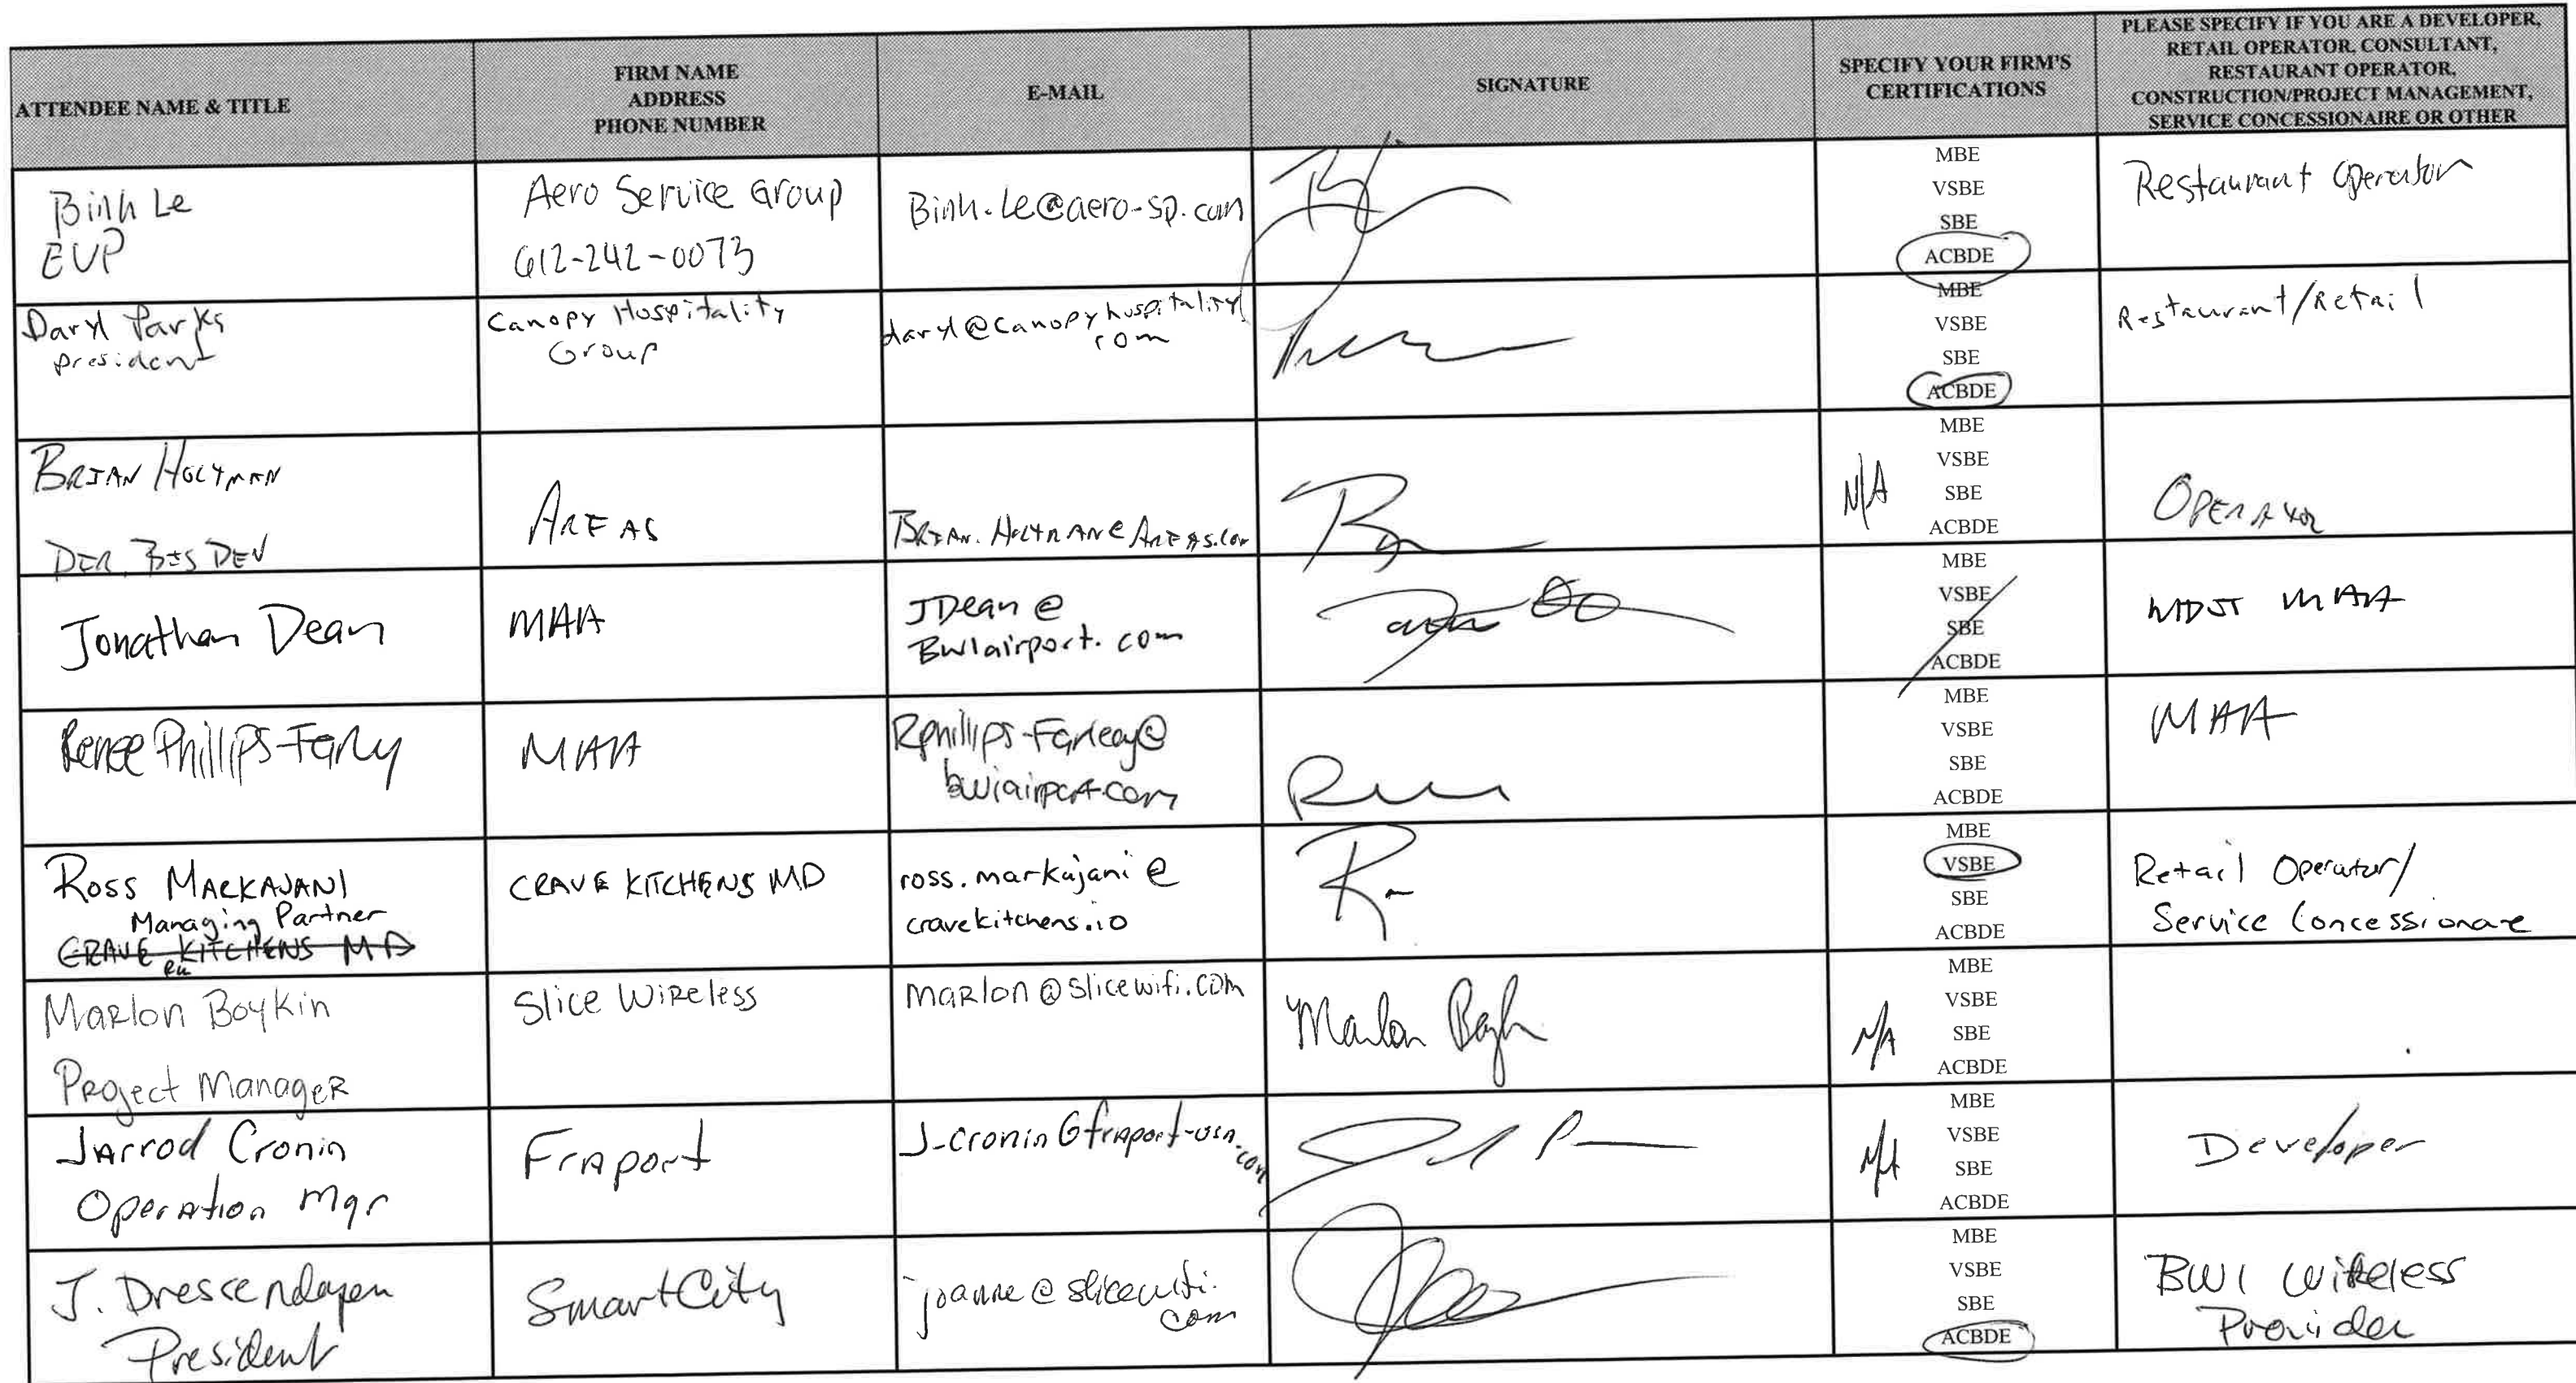 ATTENDEE NAME & TITLE
FIRM NAME
ADDRESS
PHONE NUMBER
E-MAIL
SIGNATURE
SPECIFY YOUR FIRM'S
CERTIFICATIONS
PLEASE SPECIFY IF YOU ARE A DEVELOPER,
RETAIL OPERATOR, CONSULTANT,
RESTAURANT OPERATOR,
CONSTRUCTION/PROJECT MANAGEMENT,
SERVICE CONCESSIONAIRE OR OTHER
Binh Le
EVP
Aero Service Group
612-242-0073
Binh.Le@aero-sp.com
MBE
VSBE
SBE
ACBDE
Restaurant Operator
Daryl Parks
President
Canopy Hospitality
Group
daryl@canopyhospitality
com
MBE
VSBE
SBE
ACBDE
Restaurant/Retail
BRIAN HOLTMAN
DIR. BIS DEV
AREAS
BRIAN.HOLTMAN@AREAS.COM
N/A
MBE
VSBE
SBE
ACBDE
OPERATOR
Jonathan Dean
MAA
JDean @
BWIairport.com
MBE
VSBE
SBE
ACBDE
MDOT MAA
Renee Phillips-Farley
MAA
Rphillips-Farley@
bwiairport.com
MBE
VSBE
SBE
ACBDE
MAA
ROSS MARKAJANI
Managing Partner
CRAVE KITCHENS MD
RM
CRAVE KITCHENS MD
ross.markajani@
cravekitchens.io
MBE
VSBE
SBE
ACBDE
Retail Operator/
Service Concessionare
MaRlon Boykin
PRoject ManageR
Slice WiReless
maRlon@slicewifi.com
Marlon Boykin
N/A
MBE
VSBE
SBE
ACBDE
Jarrod Cronin
Operation Mgr
Fraport
J-cronin@fraport-usa.com
N/A
MBE
VSBE
SBE
ACBDE
Developer
J.
President
SmartCity
joanne@slicewifi.
com
MBE
VSBE
SBE
ACBDE
BWI WIRELESS
Provider